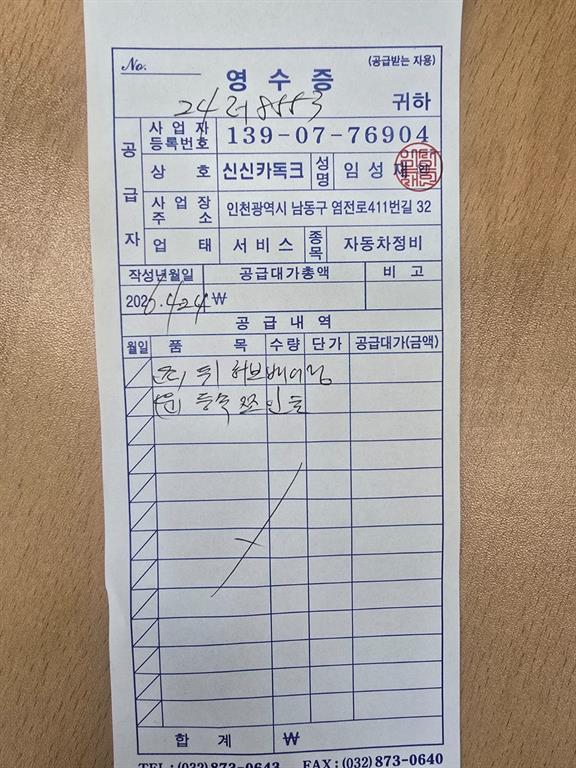 No. (공급받는 자용)
영 수 증
24러8553 귀하
공급자
사업자등록번호 139-07-76904
상 호 신신카독크 성명 임성재 인
사업장주소 인천광역시 남동구 염전로411번길 32
업 태 서비스 종목 자동차정비
작성년월일 공급대가총액 비 고
2026.4.24 ₩
공 급 내 역
월일 품 목 수량 단가 공급대가(금액)
뒤 허브베어링
등속 죠인트
합 계 ₩
TEL:(032)873-0643 FAX:(032)873-0640